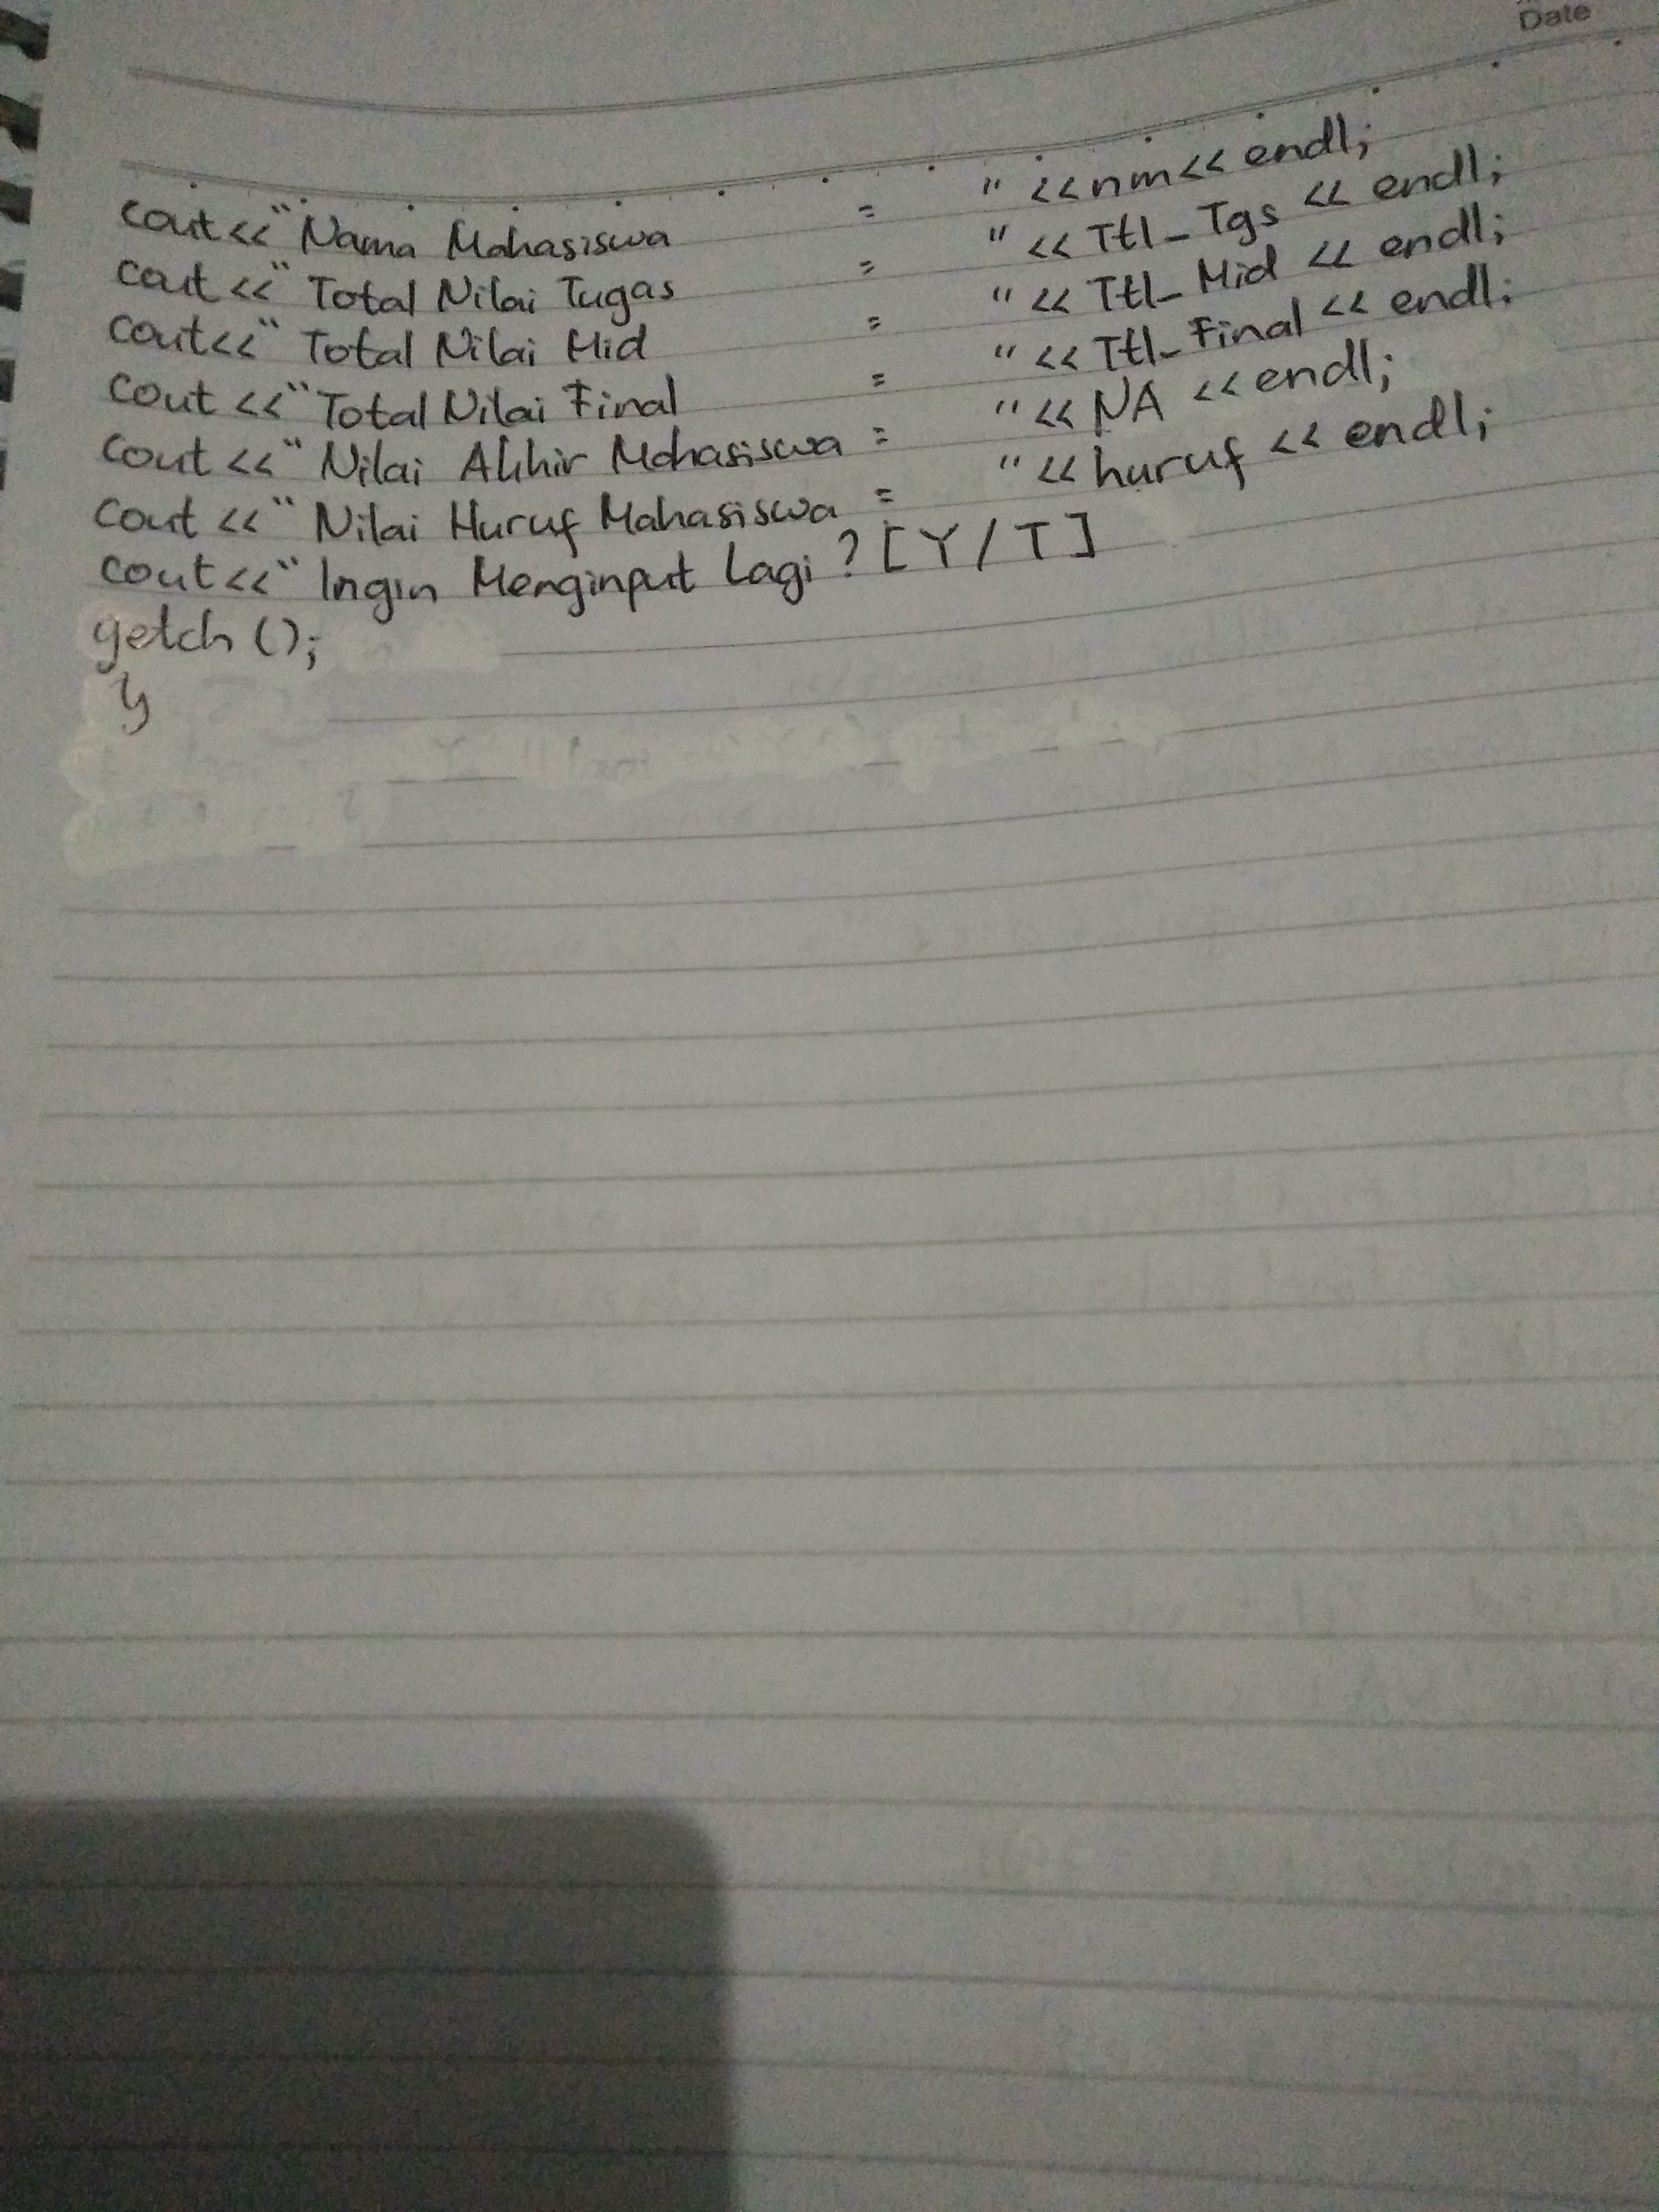 Date
cout << " Nama Mahasiswa = " << nm << endl;
cout << " Total Nilai Tugas = " << Ttl_Tgs << endl;
cout << " Total Nilai Mid = " << Ttl_Mid << endl;
cout << " Total Nilai Final = " << Ttl_Final << endl:
cout << " Nilai Akhir Mahasiswa = " << NA << endl;
cout << " Nilai Huruf Mahasiswa = " << huruf << endl;
cout << " Ingin Menginput Lagi ? [Y/T]
getch ();